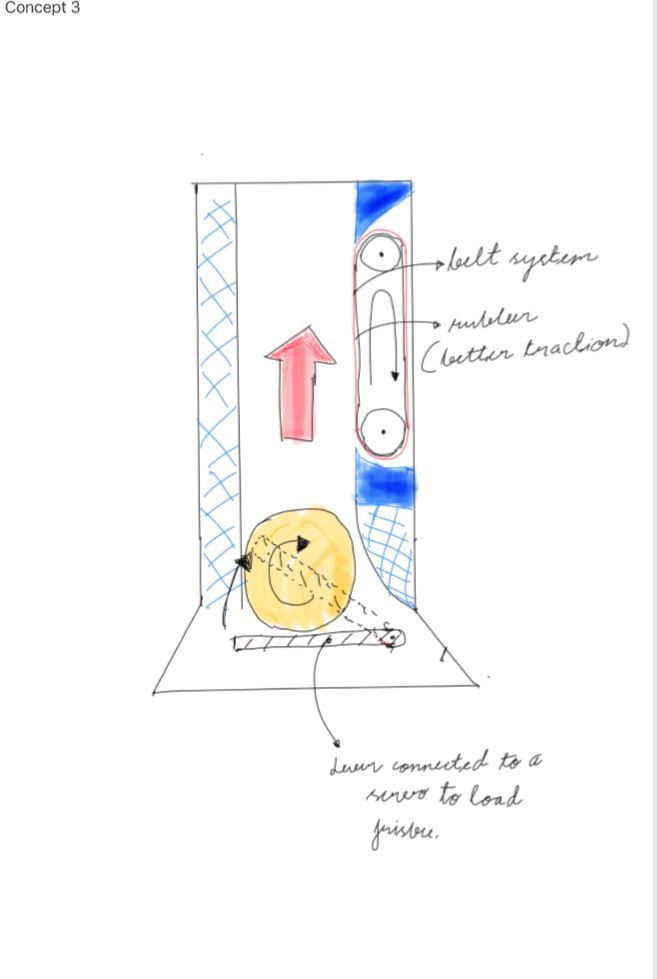 Concept 3
belt system
rubber
(better traction)
Lever connected to a
servo to load
frisbee.